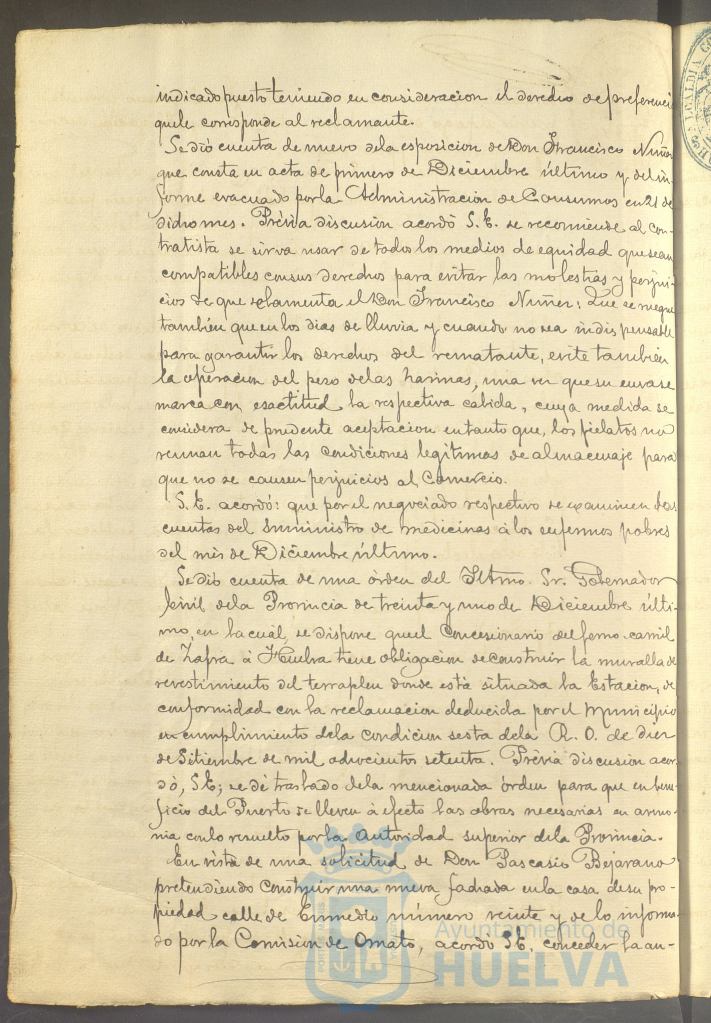 indicado puesto teniendo en consideracion el derecho de preferenci
que le corresponde al reclamante.
Se dió cuenta de nuevo de la esposicion de Don Francisco Nuñez
que consta en acta de primero de Diciembre último y del in-
forme evacuado por la Administracion de Consumos en 21 de
dicho mes. Prévia discusion acordó S.E. se recomiende al con-
tratista se sirva usar de todos los medios de equidad que sean
compatibles con sus derechos para evitar las molestias y perjui-
cios de que se lamenta el Don Francisco Nuñez: Que se ruegue
tambien que en los dias de lluvia y cuando no sea indispensable
para garantir los derechos del rematante, evite tambien
la operacion del peso de las harinas, una vez que su envase
marca con esactitud la respectiva cabida, cuya medida se
considera de prudente aceptacion en tanto que, los fielatos no
reunan todas las condiciones legítimas de almacenaje para
que no se causen perjuicios al Comercio.
S.E. acordó: que por el negociado respectivo se examinen las
cuentas del suministro de medicinas á los enfermos pobres
del mes de Diciembre último.
Se dió cuenta de una órden del Iltmo. Sr. Gobernador
Civil de la Provincia de treinta y uno de Diciembre últi-
mo, en la cuál, se dispone que el Concesionario del ferro-carril
de Zafra á Huelva tiene obligacion de construir la muralla de
revestimiento del terraplen donde está situada la Estacion, de
conformidad con la reclamacion deducida por el Municipio
en cumplimiento de la condicion sesta de la R. O. de diez
de Setiembre de mil ochocientos setenta. Prévia discusion acor-
dó, S.E; se dé traslado de la mencionada órden para que en bene-
ficio del Puerto se lleven á efecto las obras necesarias en armo-
nia con lo resuelto por la autoridad superior de la Provincia.
En vista de una solicitud de Don Pascasio Bejarano
pretendiendo construir una nueva fachada en la casa de su pro-
piedad calle de Enmedio número veinte y de lo informa-
do por la Comision de Ornato, acordó S.E. conceder la au-
Ayuntamiento de
HUELVA